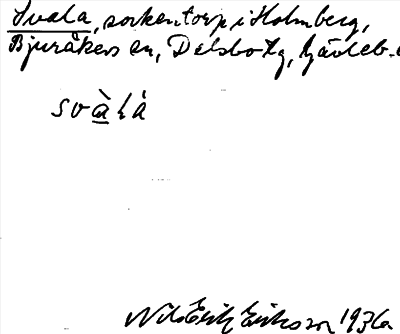 Svala, sockentorp i Holmberg,
Bjuråkers sn, Delsbo tg, Gävleb.
svàlà
Nils Erik Eriksson 1936